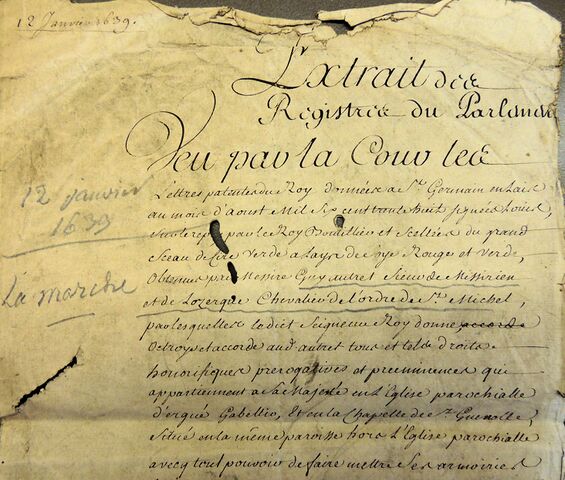 12 Janvier 1639.
Extrait des
Registres du Parlement
Veu par la Cour les
Lettres patentes du Roy données a St. Germain en Laie
au mois d'aoust Mil Six cent trente huit signées Louis,
par le Roy Bouthillier et scellées du grand
Sceau de Cire Verde a Lays de soye Rouge et verde,
Obtenues par Messire Guy autret Sieur de Missirien
et de Lezergue Chevalier de l'ordre de St. Michel,
par lesquelles ledict Seigneur Roy donne accorde
Octroye et accorde aud. autret tous et telz droits
honorifiques prerogatives et preeminences qui
appartiennent a Sa Majesté en L'Eglise parochialle
d'ergue Gaberic, Et en la Chapelle de St. Guenolle,
Situé en la même paroisse hors L'Eglise parochialle
avecq tout pouvoir de faire mettre Ses armoiries
12 janvier
1639
La marche